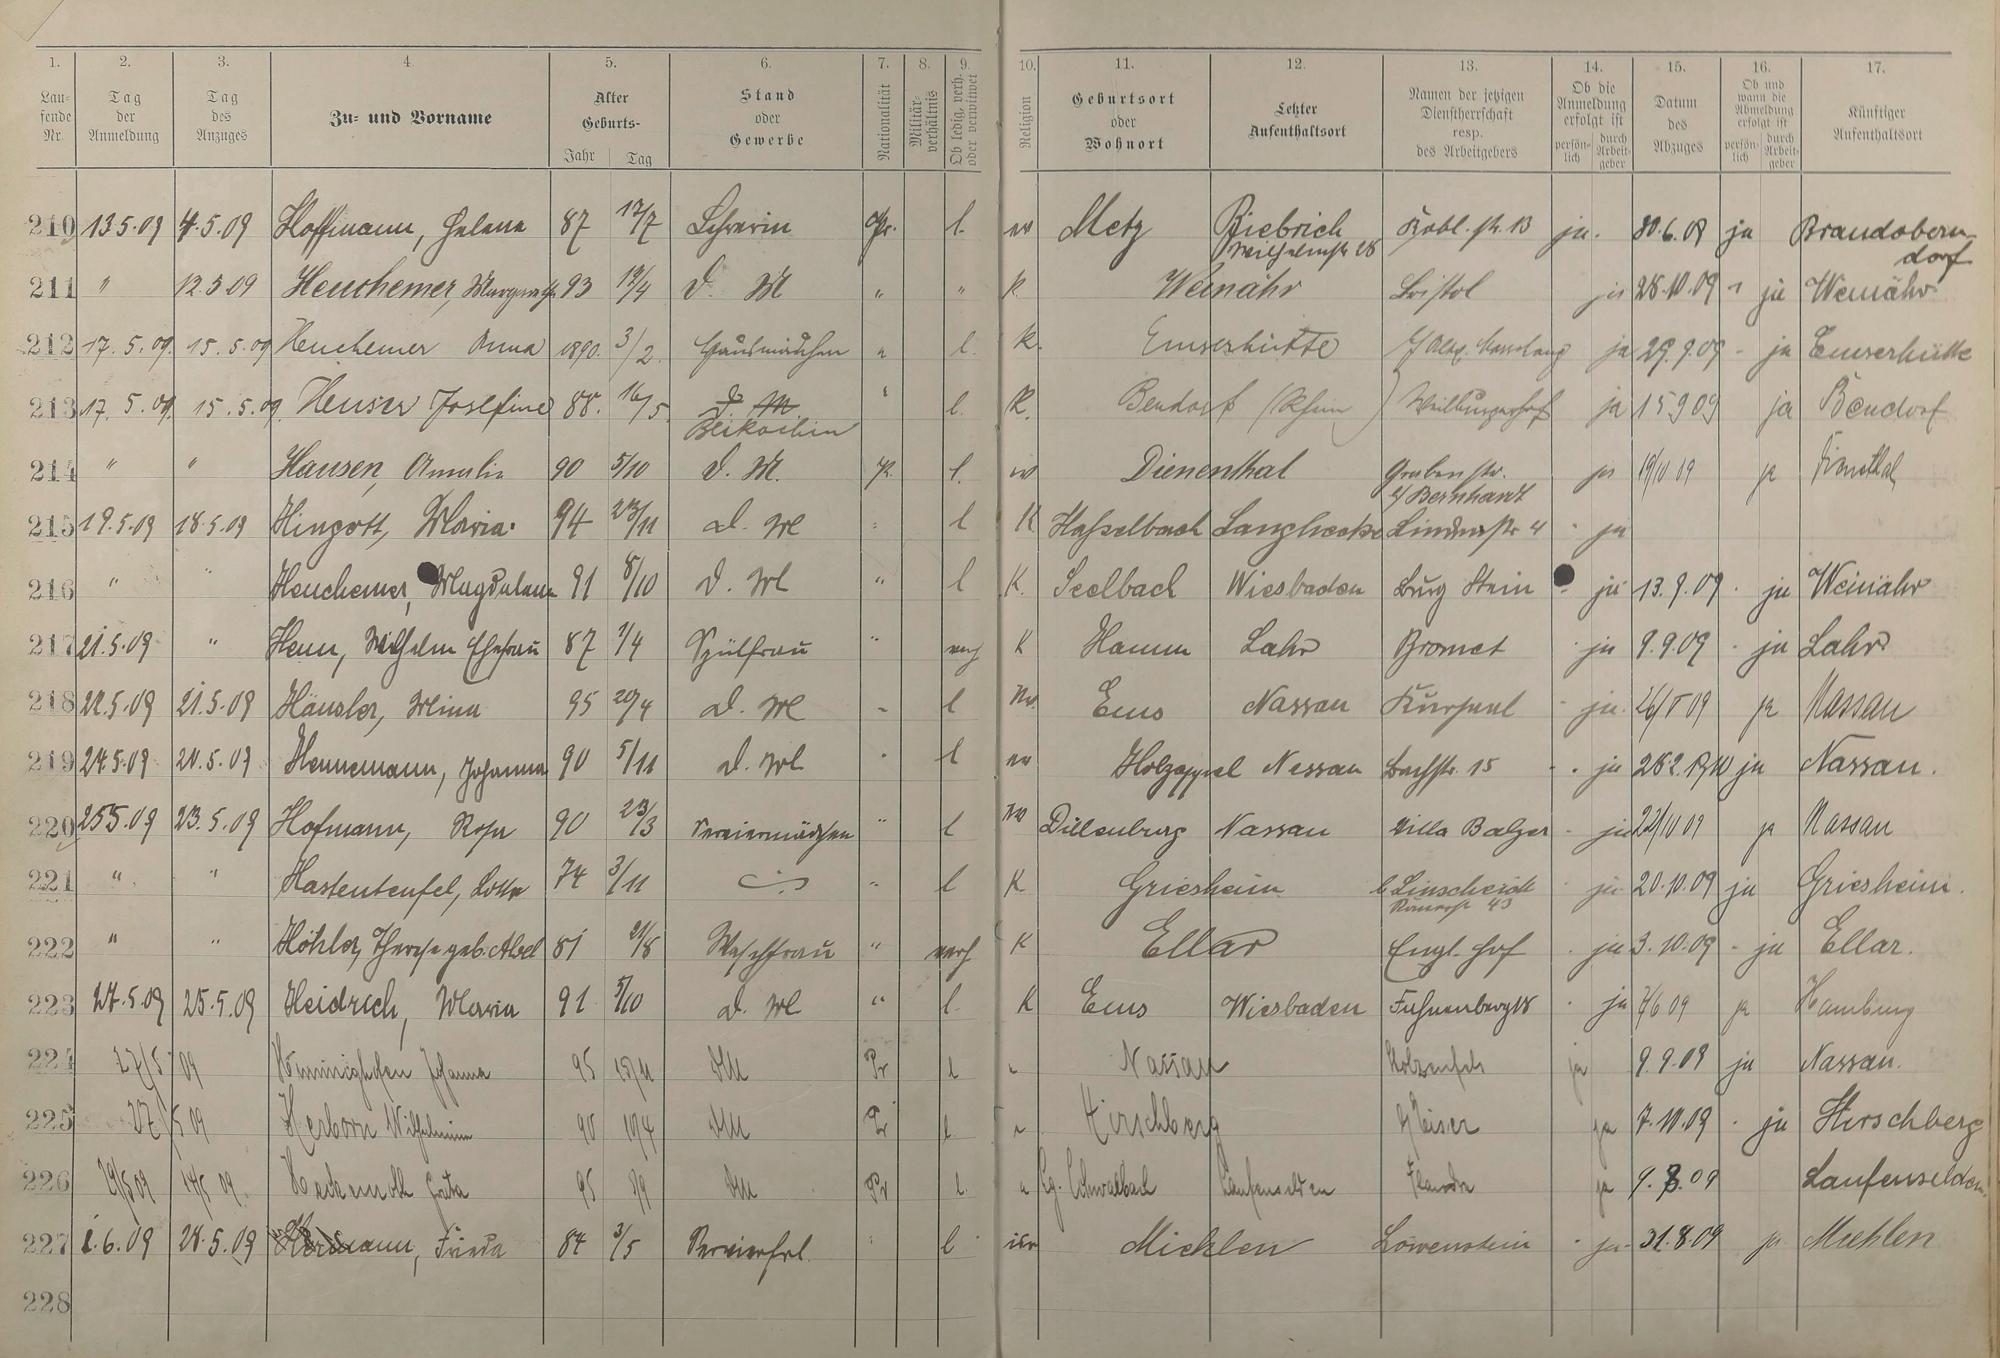 1. 2. 3. 4. 5. 6. 7. 8. 9. 10. 11. 12. 13. 14. 15. 16. 17.
Lau-fende Nr. Tag der Anmeldung Tag des Anzuges Zu- und Vorname Alter Geburts- Jahr Tag Stand oder Gewerbe Nationalität Militär-verhältnis Ob ledig, verh. oder verwitwet Religion Geburtsort oder Wohnort Letzter Aufenthaltsort Namen der jetzigen Dienstherrschaft resp. des Arbeitgebers Ob die Anmeldung erfolgt ist persön-lich durch Arbeit-geber Datum des Abzuges Ob und wann die Abmeldung erfolgt ist persön-lich durch Arbeit-geber Künftiger Aufenthaltsort
210 13.5.09 4.5.09 Hoffmann, Helene 87 17/7 Lehrerin Pr. l. Metz Biebrich Kobl. str. 13 ja. 30.6.09 ja Brandobern-
Wilhelmstr 28 dorf
211 " 12.5.09 Heuchemer, Margareth 93 19/4 d. M " " K Weinähr Bristol ja 28.10.09 ja Weinähr
212 17.5.09. 15.5.09 Heuchemer Anna 1890. 3/2. Hausmädchen " l. K. Emserhütte ja 29.9.09 - ja Emserhütte
213 17.5.09. 15.5.09. Heuser Josefine 88. 16/5. d. M. " l. K. Bendorf (Rhein) Weilburgerhof ja 15 9 09 ja Bendorf
Beiköchin
214 " " Hansen, Amalie 90 5/10 d. M. Pr. l. w Dienenthal Grabenstr. ja 19/10 09 ja
b/ Bernhardt
215 19.5.09 18.5.09 Hingott, Maria. 94 23/11 d. M l K Haßelbach Langhecke Lindenstr 4 - ja
216 " " Heuchemer, Magdalena 91 8/10 d. M " l K. Seelbach Wiesbaden Burg Stein ja 13.9.09 - ja Weinähr
217 21.5.09 " Henn, Wilhelm Ehefrau 87 1/4 Spülfrau " verh K Hamm Lahr Bromet - ja 9.9.09 - ja Lahr
218 22.5.09 21.5.09 Häusler, Mina 95 20/4 d. M - l Ems Nassau Kursaal - ja. ja Nassau
219 24.5.09 20.5.09 Hennemann, Johanna 90 5/11 d. M l Holzappel Nassau Bachstr. 15 - ja ja Nassau.
220 25.5.09 23.5.09 Hofmann, Rosa 90 23/3 Serviermädchen " l Dillenburg Nassau Villa Balzer - ja 22/10 09 ja Nassau
221 " " Hastenteufel, Lotte 74 3/11 " l K Griesheim b Linscheidt - ja 20.10.09 ja Griesheim.
Römerstr 43
222 " " Höhler, Therese geb. Abel 81 21/8 Waschfrau " verh K Ellar Engl. Hof - ja 3.10.09 - ja Ellar.
223 24.5.09 25.5.09 Heidrich, Maria 91 5/10 d. M " l. K Ems Wiesbaden - ja 7/6 09 ja Hamburg
224 27/5 09 Johanna 95 15/11 dM Pr l Nassau ja 9.9.09 ja Nassau.
225 27/5 09 Herborn Wilhelmine 90 10/4 dM Pr l Hirschberg ja 7.10.09 - ja Hirschberg
226 29/5 09 95 8/9 dM Pr l. Lg. Schwalbach Laufenselden Flandre ja 9.8.09 Laufenselden
227 1.6.09 28.5.09 Frieda 84 3/5 Servierfrl. l Miehlen Löwenstein - ja 31.8.09 ja Miehlen
228